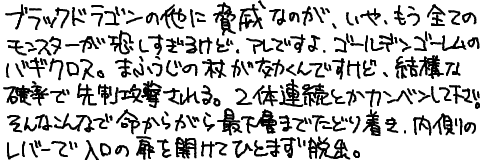 ブラックドラゴンの他に脅威なのが、いや、もう全ての
モンスターが恐しすぎるけど、アレですよ、ゴールデンゴーレムの
バギクロス。まふうじの杖が効くんですけど、結構な
確率で先制攻撃される。2体連続とかカンベンして下さい。
そんなこんなで命からがら最下層までたどり着き、内側の
レバーで入口の扉を開けてひとまず脱出。